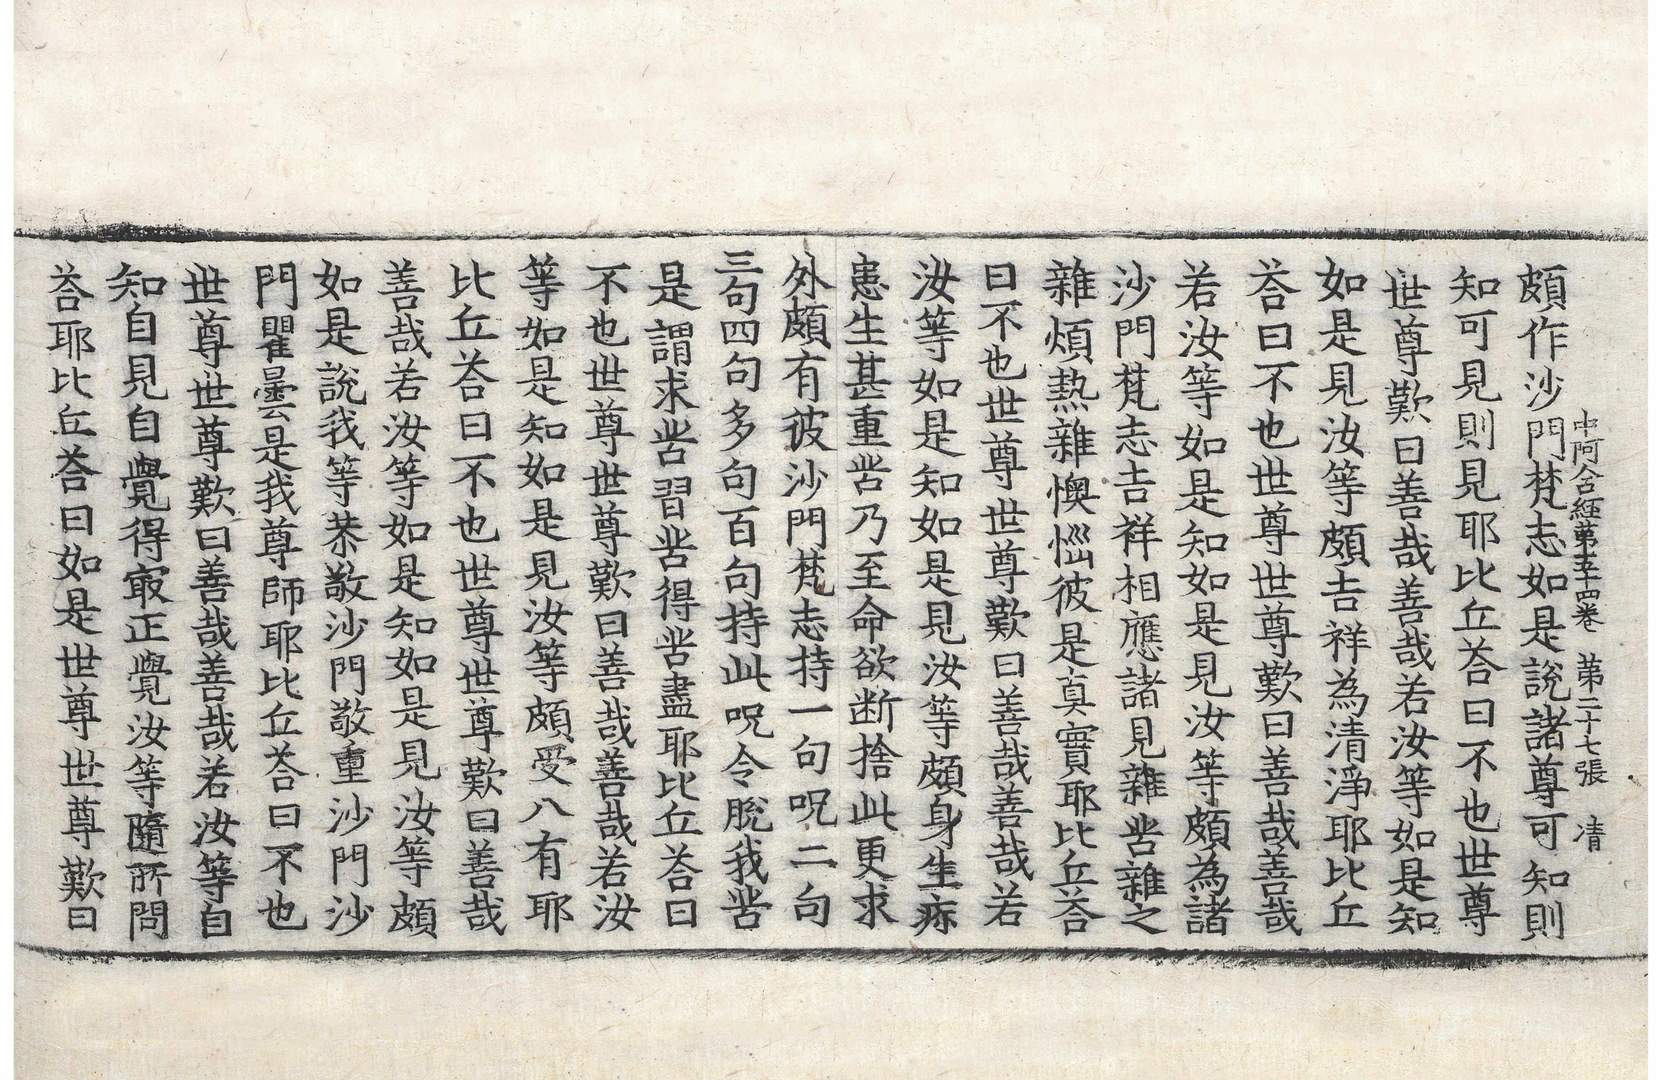 中阿含經第五十四卷 第二十七張 清
頗作沙門梵志如是說諸尊可知則
知可見則見耶比丘荅曰不也世尊
世尊歎曰善哉善哉若汝等如是知
如是見汝等頗吉祥為清淨耶比丘
荅曰不也世尊世尊歎曰善哉善哉
若汝等如是知如是見汝等頗為諸
沙門梵志吉祥相應諸見雜苦雜之
雜煩熱雜懊惱彼是真實耶比丘荅
曰不也世尊世尊歎曰善哉善哉若
汝等如是知如是見汝等頗身生疹
患生甚重苦乃至命欲斷捨此更求
外頗有彼沙門梵志持一句呪二句
三句四句多句百句持此呪令脫我苦
是謂求苦習苦得苦盡耶比丘荅曰
不也世尊世尊歎曰善哉善哉若汝
等如是知如是見汝等頗受八有耶
比丘荅曰不也世尊世尊歎曰善哉
善哉若汝等如是知如是見汝等頗
如是說我等恭敬沙門敬重沙門沙
門瞿曇是我尊師耶比丘荅曰不也
世尊世尊歎曰善哉善哉若汝等自
知自見自覺得㝡正覺汝等隨所問
荅耶比丘荅曰如是世尊世尊歎曰